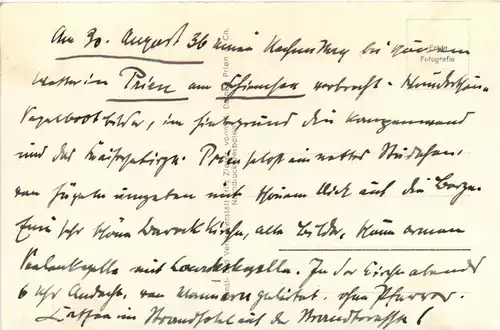 Am 30. August 36 einen Nachmittag bei schönem
Wetter in Prien am Chiemsee verbracht - Wunderschöne
Segelbootbilder, im Hintergrund die Kampenwand
und das Kaisergebirge. Prien selbst ein nettes Städtchen,
von Hügeln umgeben mit schönem Blick auf die Berge.
Eine sehr schöne Barockkirche, alte Bilder,
Seelenkapelle mit Lourdeskapelle. In der Kirche abends
6 Uhr Andacht, von Männern geleitet, ohne Pfarrer.
Kaffee im Strandhotel auf der Strandterasse!
Echte
Fotografie